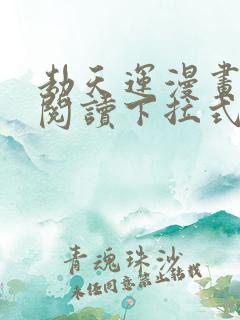 劫天運漫畫
閱讀下拉式
青魂珠沙
未经同意禁止转载